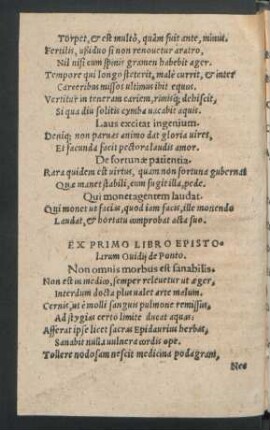 Torpet, & est multò, quàm fuit ante, minus.
Fertilis, assiduo si non renouetur aratro,
Nil nisi cum spinis gramen habebit ager.
Tempore qui longo steterit, malè currit, & inter
Carceribus missos ultimus ibit equus.
Vertitur in teneram cariem, rimisq; dehiscit,
Si qua diu solitis cymba uacabit aquis.
Laus excitat ingenium.
Deniq; non paruas animo dat gloria uires,
Et facunda facit pectora laudis amor.
De fortunæ patientia.
Rara quidem est uirtus, quam non fortuna gubernat
Quæ manet stabili, cum fugit illa, pede.
Qui monet agentem laudat.
Qui monet ut facias, quod iam facis, ille monendo
Laudat, & hortatu comprobat acta suo.
EX PRIMO LIBRO EPISTO-
larum Ouidij de Ponto.
Non omnis morbus est sanabilis.
Non est in medico, semper releuetur ut æger,
Interdum docta plus ualet arte malum.
Cernis, ut è molli sanguis pulmone remissus,
Ad stygias certo limite ducat aquas.
Afferat ipse licet sacras Epidaurius herbas,
Sanabit nulla uulnera cordis ope.
Tollere nodosam nescit medicina podagram,
Nec